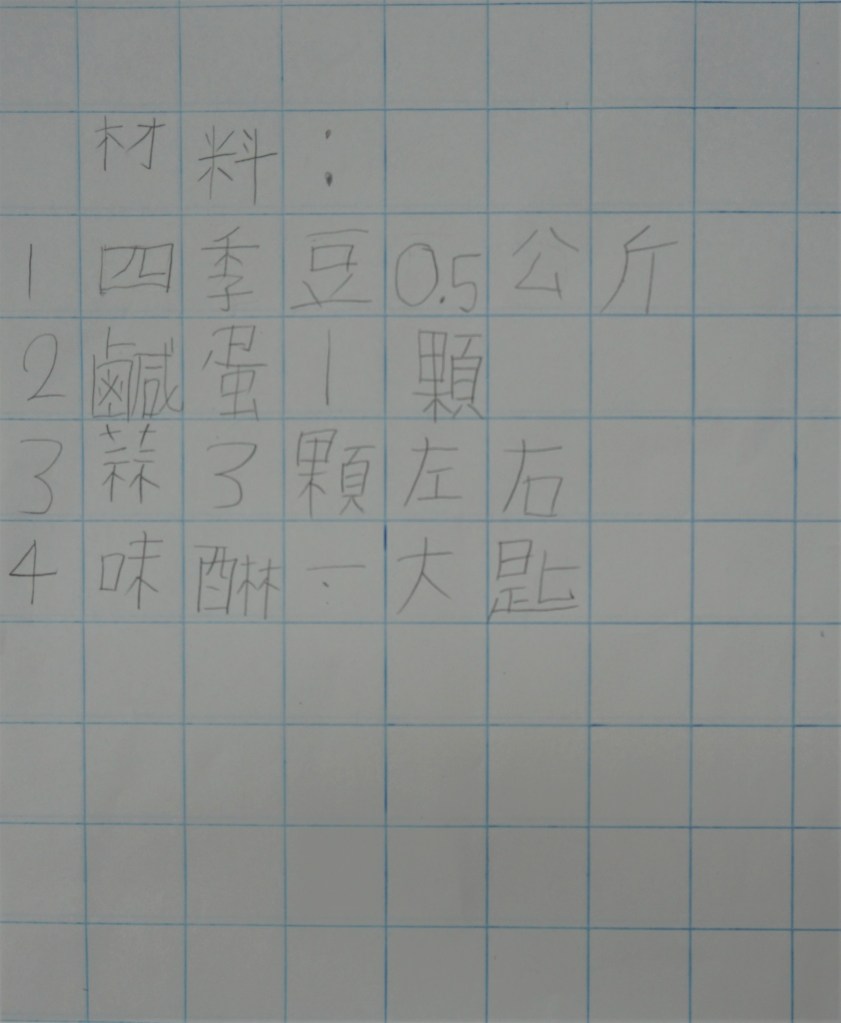 材料：
1四季豆0.5公斤
2鹹蛋1顆
3蒜3顆左右
4味醂一大匙